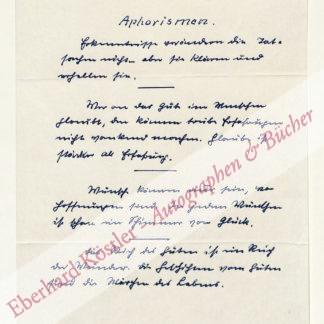 Aphorismen.
Erkenntnisse verändern die Tat-
sachen nicht - aber sie klären und
erhellen sie.
Wer an das Gute im Menschen
glaubt, den können trübe Erfahrungen
nicht wankend machen. Glaube ist
stärker als Erfahrung.
Wünsche können sein, wo
Hoffnungen sind. In jedem Wünschen
ist schon ein Schimmer von Glück.
Das Reich des Guten ist ein Reich
der Wunder. Die Geschichten vom Guten
sind die Märchen des Lebens.
Eberhard Köstler - Autographen & Bücher